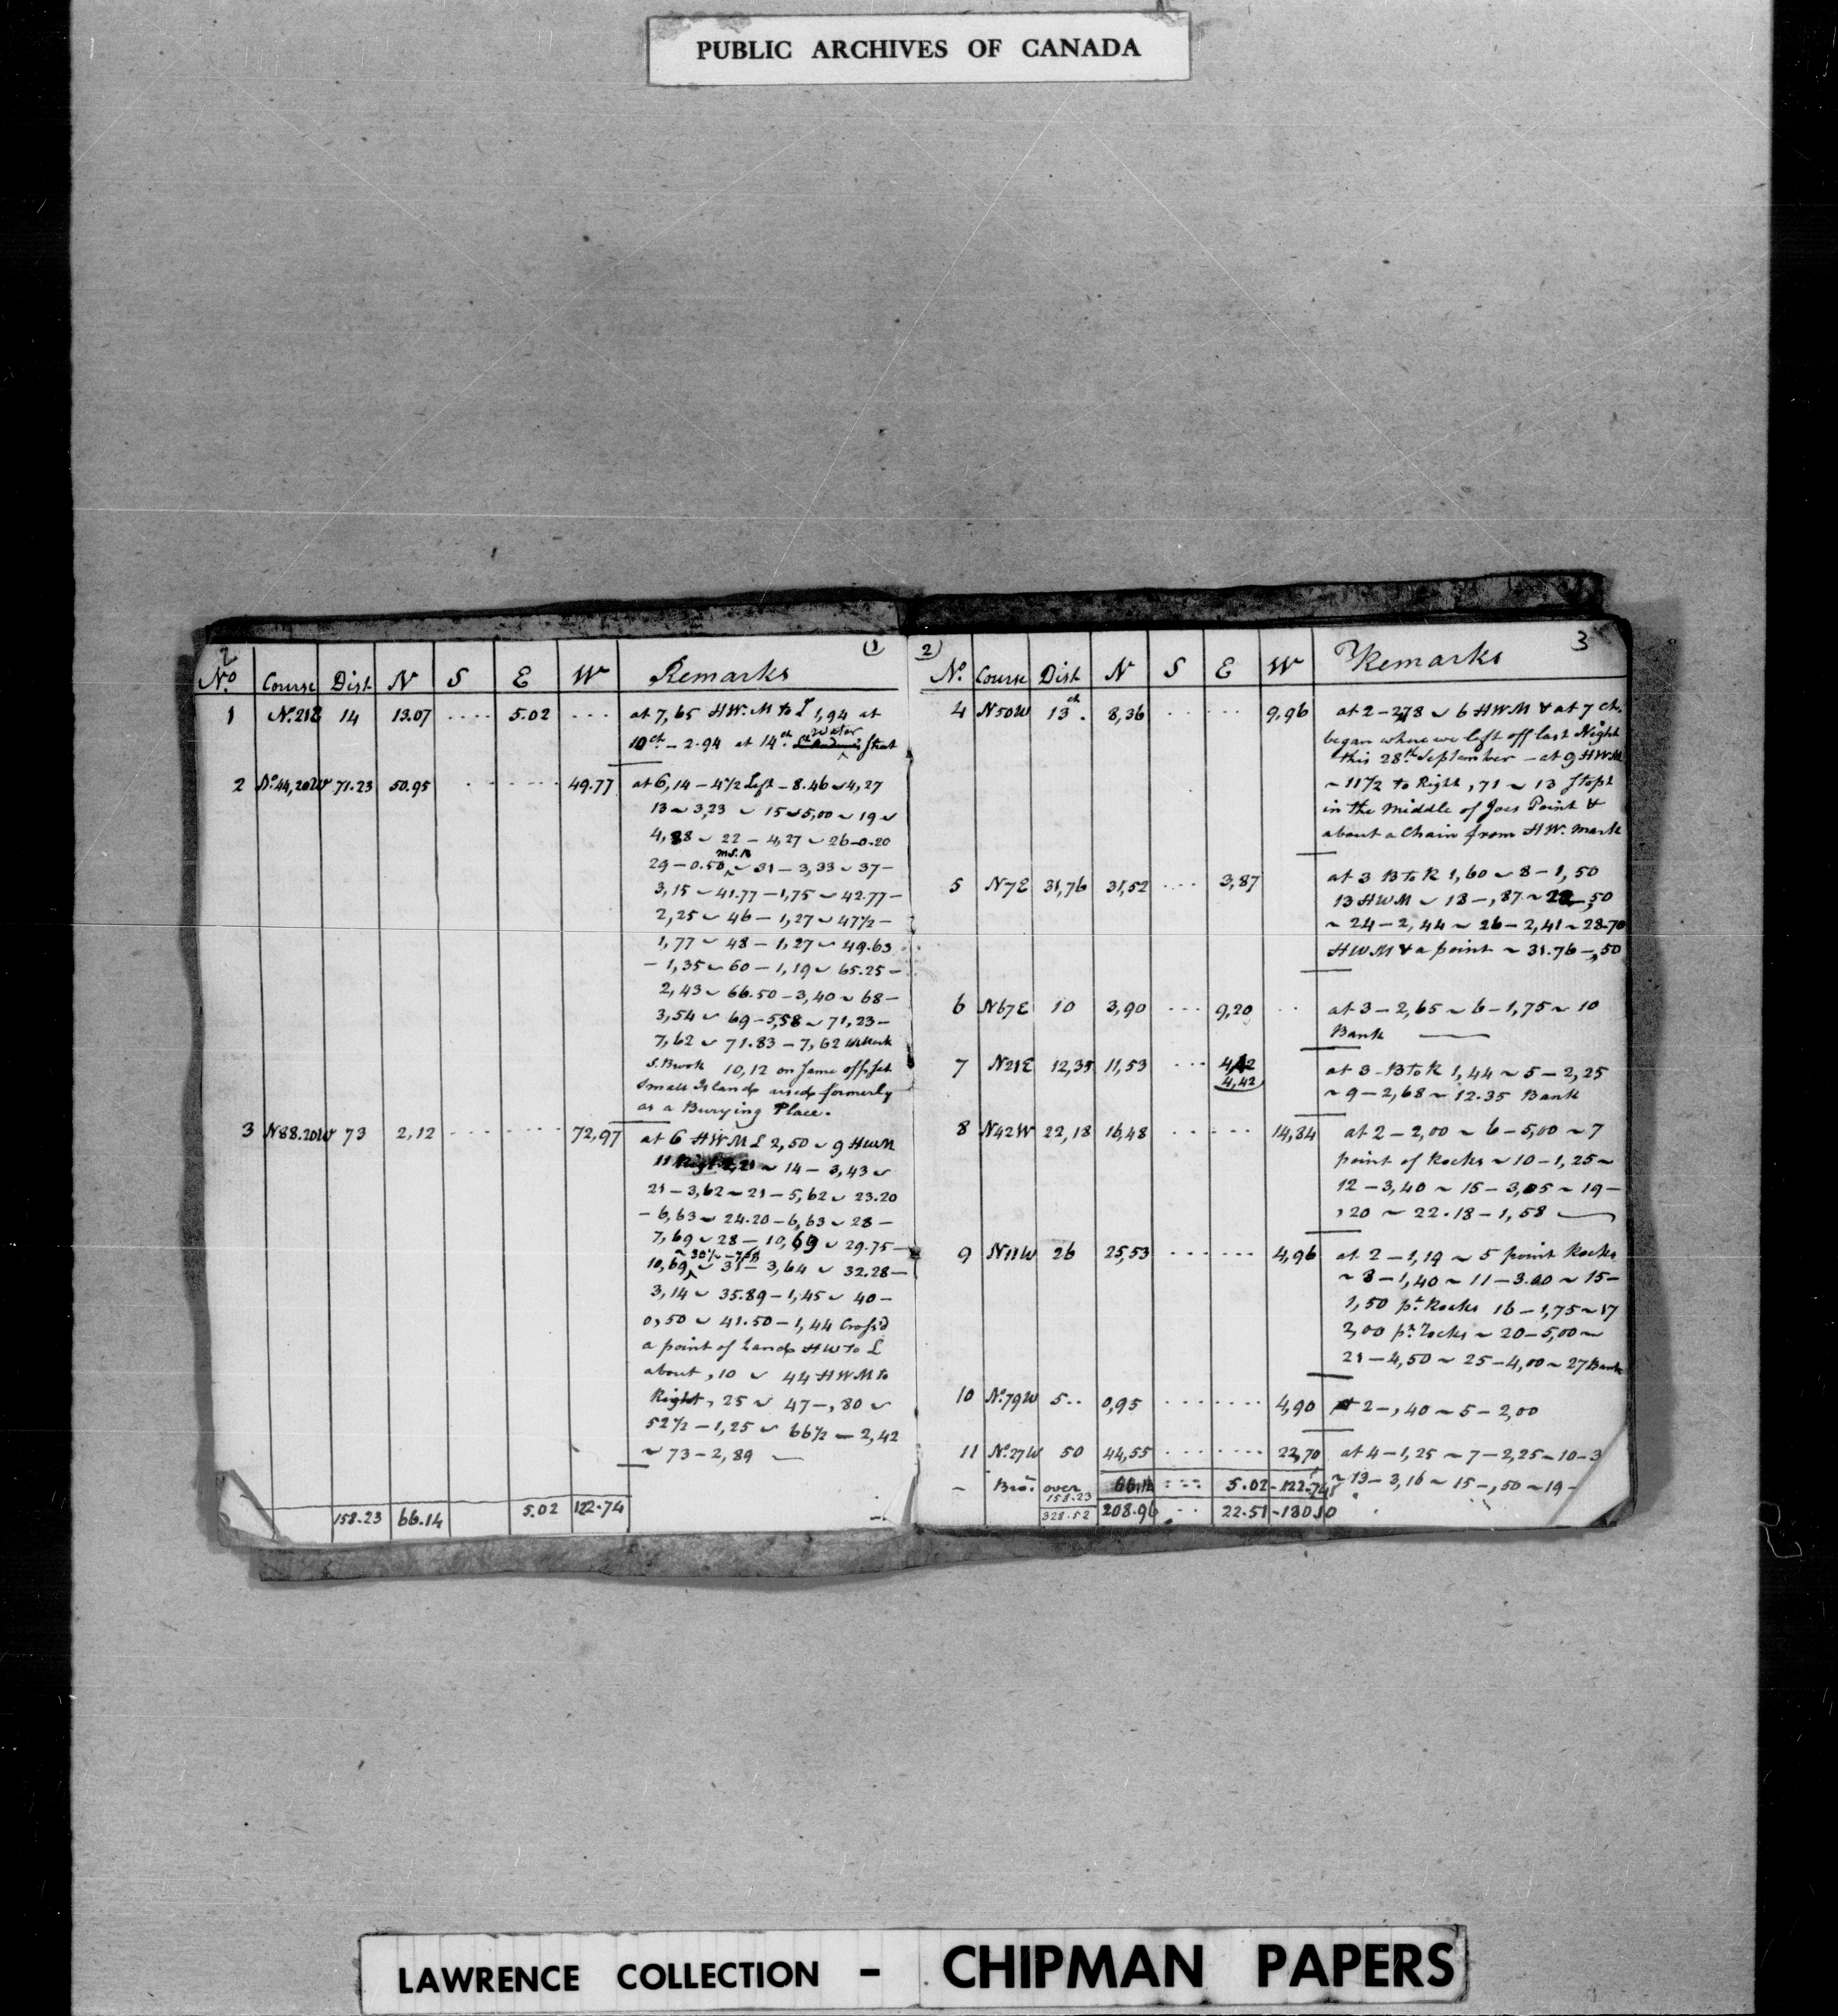 PUBLIC ARCHIVES OF CANADA
2 (1)
No. Course Dist N S E W Remarks
1 No. 21E 14 13.07 .... 5.02 ... at 7,65 HW.M to L 1,94 at
Water
10ch - 2.94 at 14th Street
2 No. 44,20W 71.23 50.95 . ..... 49.77 at 6,14 - 4 1/2 Left - 8.46 ~ 4,27
13 ~ 3,23 ~ 15 ~ 5,00 ~ 19 ~
4,88 ~ 22 - 4,27 ~ 26 - 0.20
29 - 0.50 ~ 31 - 3,33 ~ 37 -
3,15 ~ 41.77 - 1,75 ~ 42.77 -
2,25 ~ 46 - 1,27 ~ 47 1/2 -
1,77 ~ 48 - 1,27 ~ 49.63
- 1,35 ~ 60 - 1,19 ~ 65.25 -
2,43 ~ 66.50 - 3,40 ~ 68 -
3,54 ~ 69 - 5,58 ~ 71,23 -
7,62 ~ 71.83 - 7,62
S. Brook 10,12 on same offset
Small Island used formerly
as a Burying Place.
3 N88.20W 73 2,12 ...... 72,97 at 6 HWM L 2,50 ~ 9 HWM
11 Right 2,21 ~ 14 - 3,43 ~
21 - 3,62 ~ 21 - 5,62 ~ 23.20
- 6,63 ~ 24.20 - 6,63 ~ 28 -
7,69 ~ 28 - 10,69 ~ 29.75 -
~ 30 1/2 -
10,69 ~ 31 - 3,64 ~ 32.28 -
3,14 ~ 35.89 - 1,45 ~ 40 -
0,50 ~ 41.50 - 1,44 Cross'd
a point of Land HW to L
about ,10 ~ 44 HWM to
Right, 25 ~ 47 - ,80 ~
52 1/2 - 1,25 ~ 66 1/2 - 2,42
~ 73 - 2,89 ~
158.23 66.14 5.02 122.74
2) 3
No. Course Dist N S E W Remarks
4 N50W 13 ch. 8,36 . ... 9,96 at 2 - 278 ~ 6 HWM & at 7 ch.
began where we left off last Night
this 28th September - at 9 HWM
~ 11 1/2 to Right ,71 ~ 13 stopt
in the Middle of Joes Point &
about a Chain from HW. mark
5 N7E 31,76 31,52 .... 3,87 at 3 B to R 1,60 ~ 8 - 1,50
13 HWM ~ 18 - ,87 ~ 22 - ,50
~ 24 - 2,44 ~ 26 - 2,41 ~ 28.70
HWM & a point ~ 31.76 - ,50
6 N67E 10 3,90 ... 9,20 .. at 3 - 2,65 ~ 6 - 1,75 ~ 10
Bank
7 N21E 12,35 11,53 ... 4,42 at 3 - B to R 1,44 ~ 5 - 2,25
4,42 ~ 9 - 2,68 ~ 12.35 Bank
8 N42W 22,18 16,48 ..... 14,84 at 2 - 2,00 ~ 6 - 5,00 ~ 7
point of Rocks ~ 10 - 1,25 ~
12 - 3,40 ~ 15 - 3,05 ~ 19 -
,20 ~ 22.18 - 1,58
9 N11W 26 25,53 ...... 4,96 at 2 - 1,19 ~ 5 point Rocks
~ 8 - 1,40 ~ 11 - 3.00 ~ 15 -
1,50 pt. Rocks 16 - 1,75 ~ 17
2,00 pt. Rocks ~ 20 - 5,00 ~
21 - 4,50 ~ 25 - 4,00 ~ 27 Bank
10 No. 79W 5.. 0,95 ....... 4,90 at 2 - ,40 ~ 5 - 2,00
11 No. 27W 50 44,55 ....... 22,70 at 4 - 1,25 ~ 7 - 2,25 ~ 10 - 3
- Bro. over 66.14 5.02 - 122.74 ~ 13 - 3,16 ~ 15 - ,50 ~ 19 -
158.23
328.52 208.96 .. 22.51 - 180.10
LAWRENCE COLLECTION - CHIPMAN PAPERS